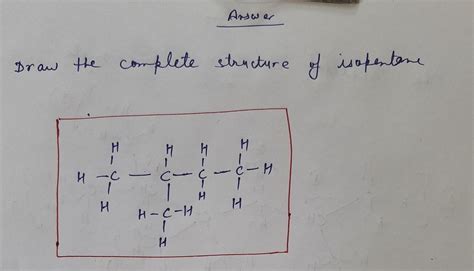 Answer
Draw the complete structure of isopentane
H H H H
H - C - C - C - C - H
H H H
H - C - H
H